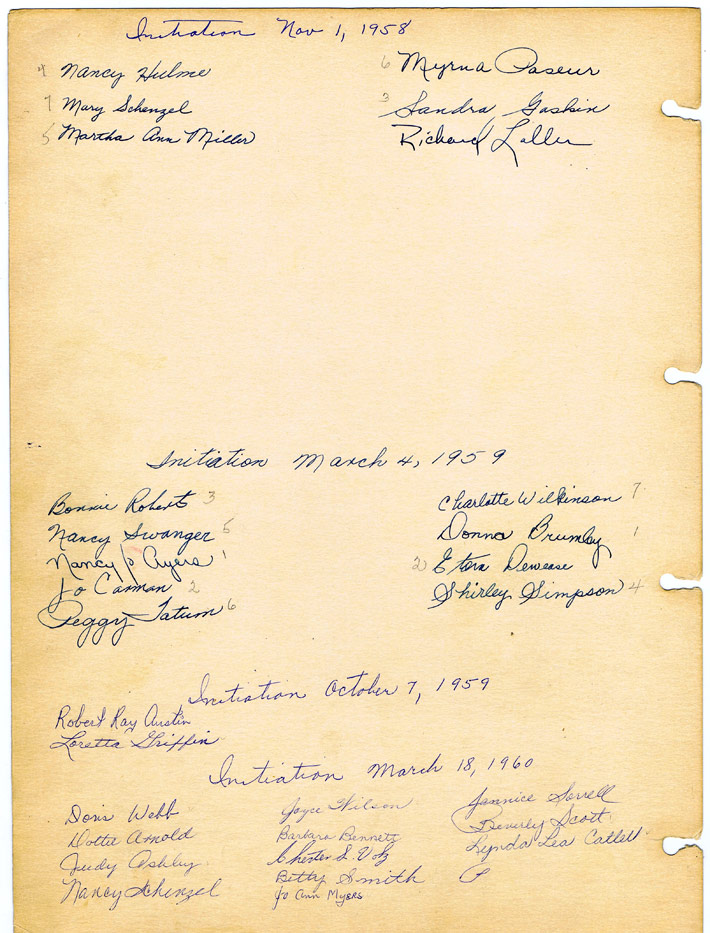 Initiation Nov 1, 1958
4 Nancy Hulme
7 Mary Schenzel
5 Martha Ann Miller
6 Myrna Paseur
3 Sandra Gaskin
Richard Laller
Initiation March 4, 1959
Bonnie Robert 3
Nancy Swanger 5
Nancy Jo Ayers 1
Jo Carman 2
Peggy Tatum 6
Charlotte Wilkinson 7
Donna Brumley 1
2 Dewease
Shirley Simpson 4
Initiation October 7, 1959
Robert Ray Austin
Loretta Griffin
Initiation March 18, 1960
Doris Webb
Dottie Arnold
Judy Ashby
Nancy Schenzel
Joyce Wilson
Barbara Bennett
Chester S. Volz
Betty Smith
Jo Ann Myers
Jannice Sorrell
Beverly Scott
Lynda Lea Catlett
P